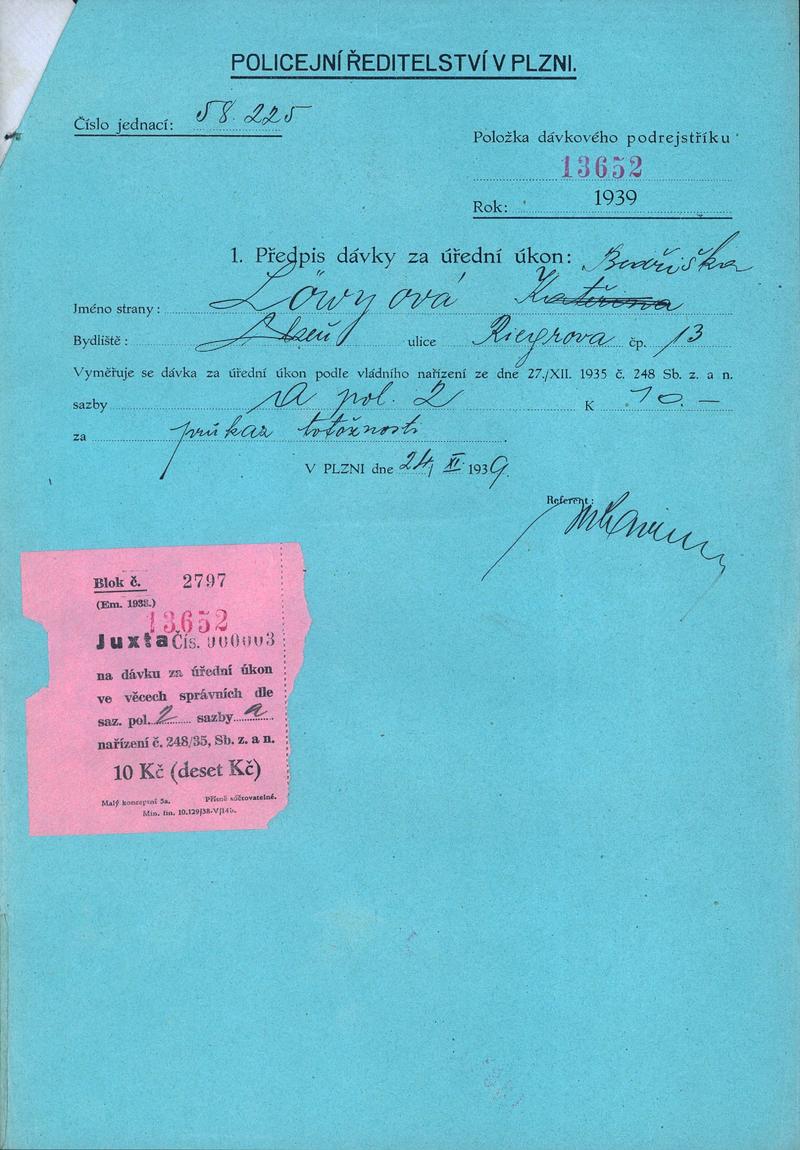 POLICEJNÍ ŘEDITELSTVÍ V PLZNI.
Číslo jednací: 58.225
Položka dávkového podrejstříku
13652
Rok: 1939
1. Předpis dávky za úřední úkon: Bedřiška
Jméno strany: Löwyová Kateřina
Bydliště: Plzeň ulice Riegrova čp. 13
Vyměřuje se dávka za úřední úkon podle vládního nařízení ze dne 27./XII. 1935 č. 248 Sb. z. a n.
sazby A pol. 2 K 10.—
za průkaz totožnosti
V PLZNI dne 24/XI. 1939.
Referent:
Blok č. 2797
(Em. 1938.)
13652
Juxta Čís. 000003
na dávku za úřední úkon
ve věcech správních dle
saz. pol. 2 sazby a
nařízení č. 248/35, Sb. z. a n.
10 Kč (deset Kč)
Malý konceptní 5a. Přísně súčtovatelné.
Min. fin. 10.129/38-V/14b.